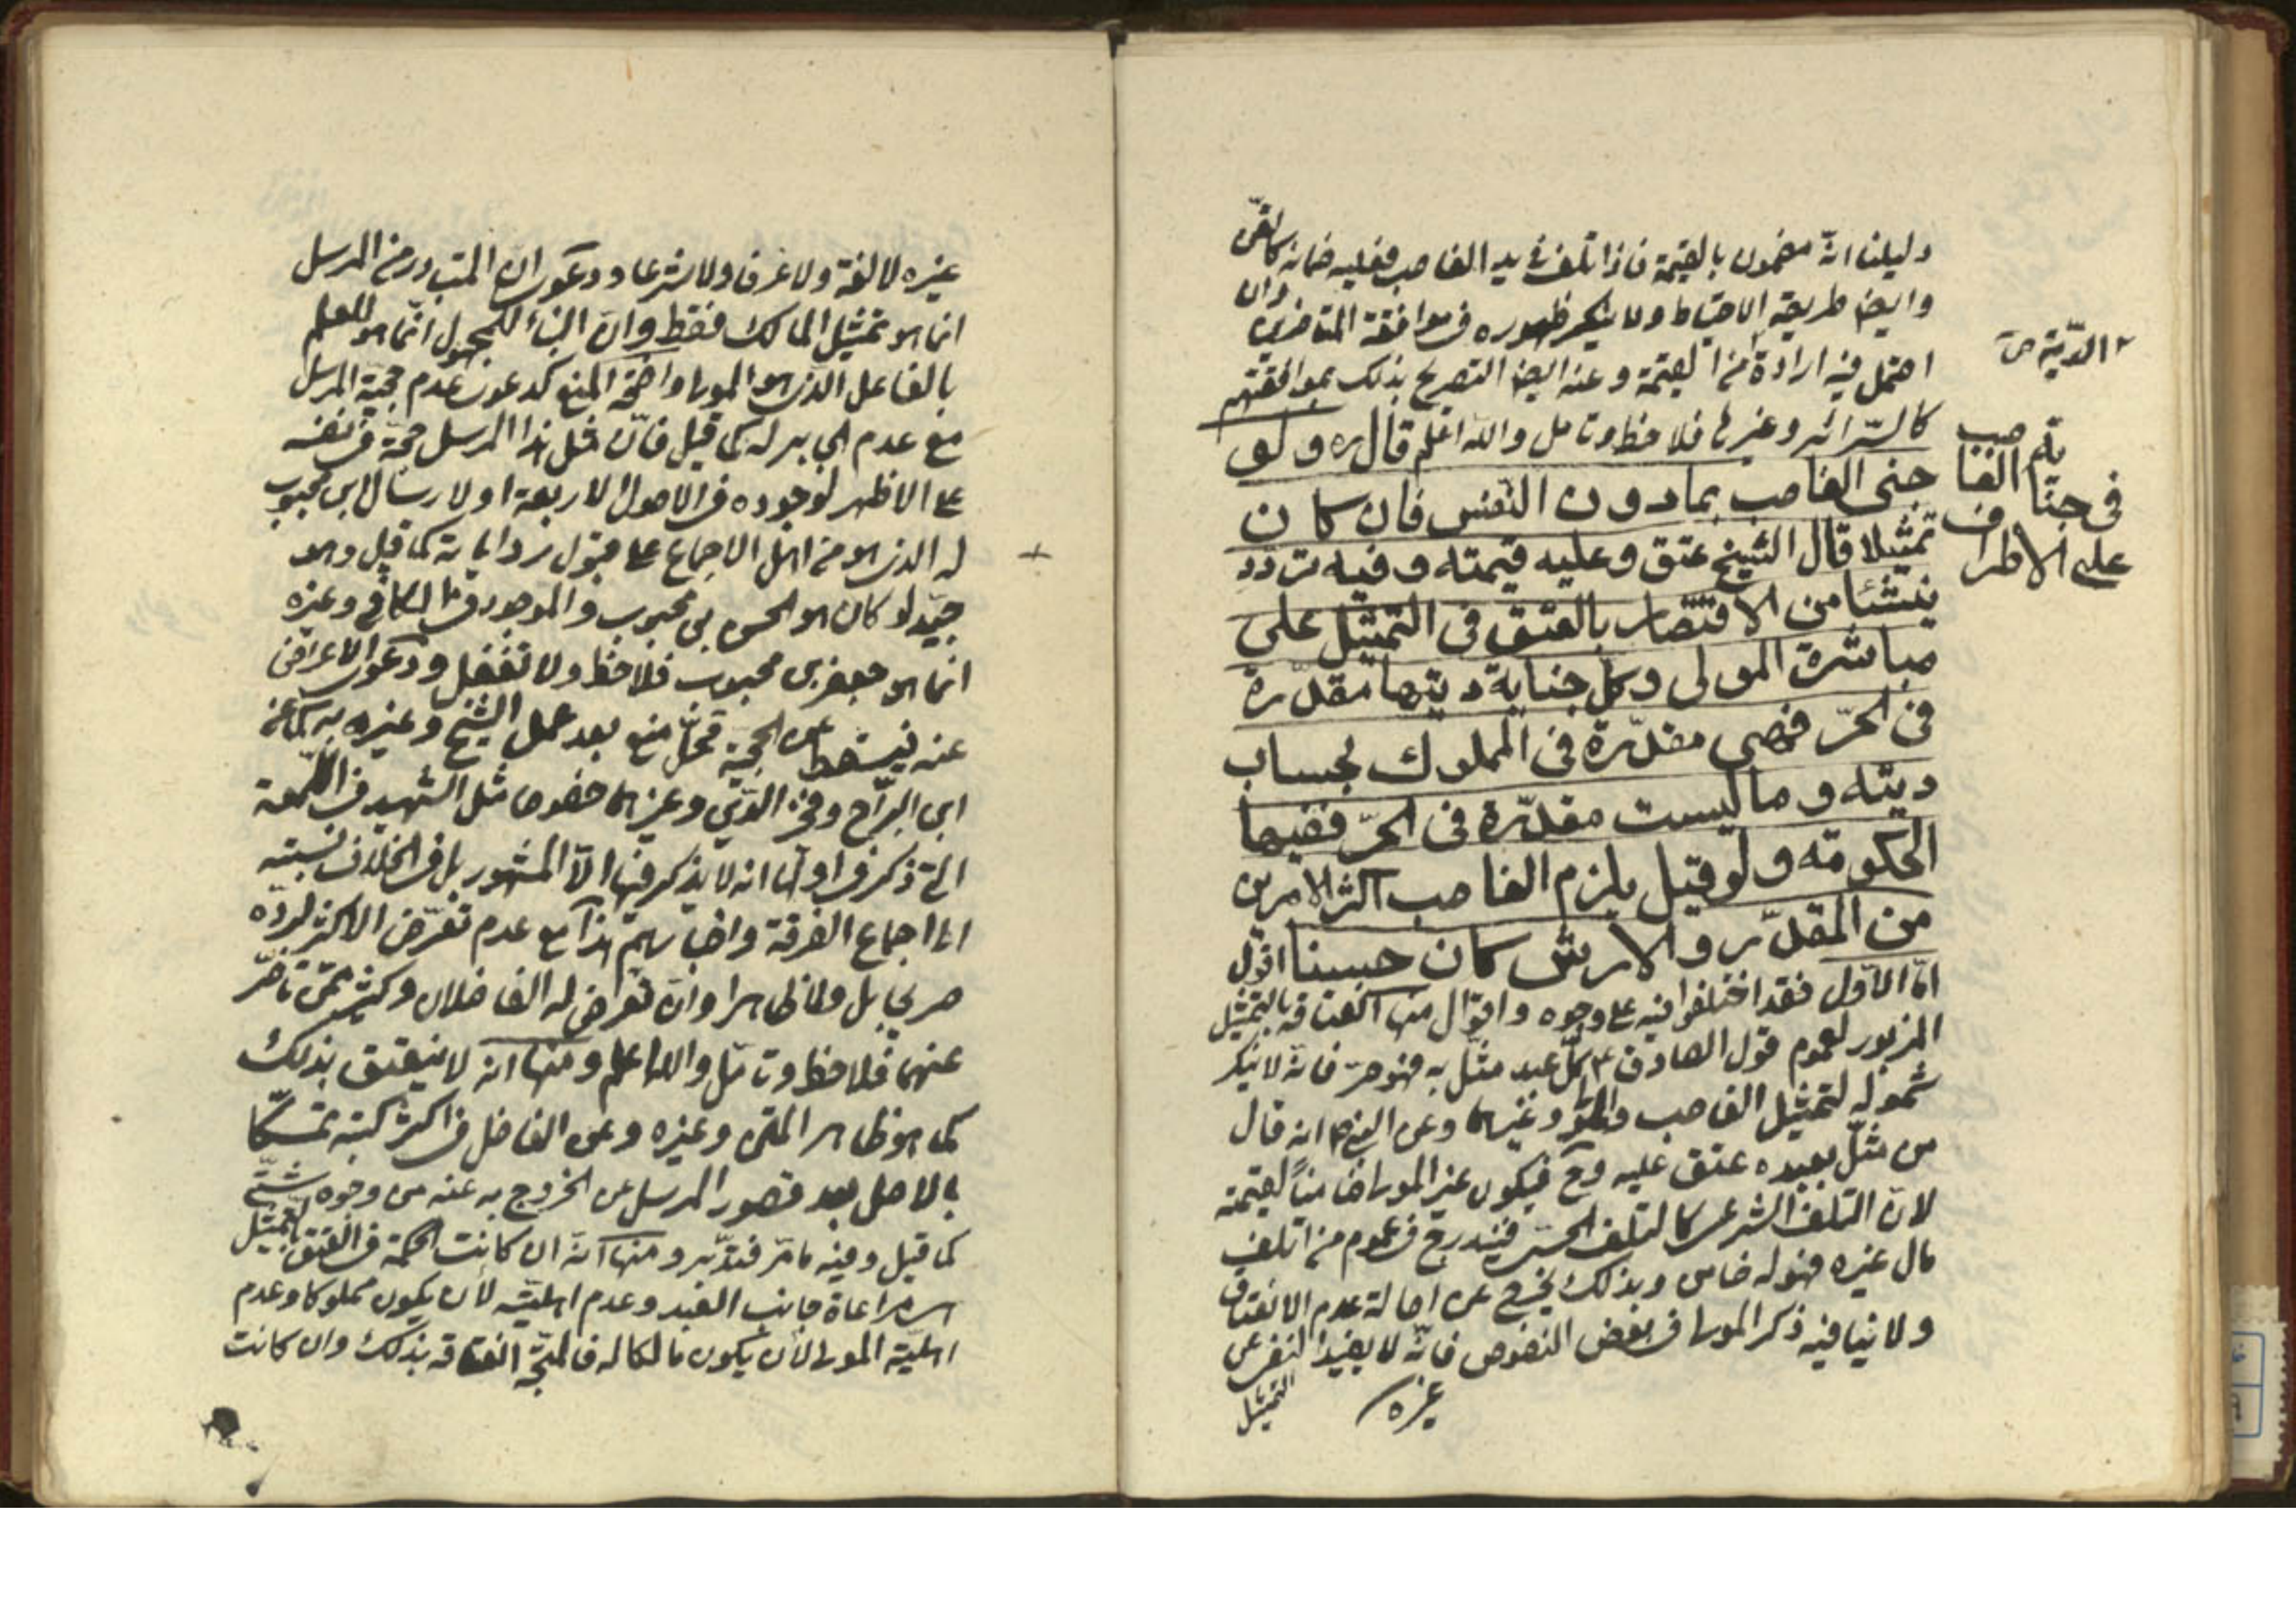 دليلنا انّه مضمون بالقيمة فاذا تلف فى يد الغاصب فعليه ضمانه كالقنّ
وايضا طريقة الاحتياط ولا ينكر ظهوره فى موافقة المتاخرين وان
احتمل فيه ارادة من القيمة وعنه ايضا التصريح بذلك بموافقتهم
كالسّرائر وغيرها فلاحظ وتامل والله اعلم قال ره ولو
جنى الغاصب بمادون النفس فان كان
تمثيلا قال الشيخ عتق وعليه قيمته وفيه تردد
ينشئا من الاقتصار بالعتق فى التمثيل على
مباشرة المولى وكل جناية ديتها مقدّرة
فى الحرّ فهى مقدّرة فى المملوك بحساب
ديته وما ليست مقدّرة فى الحرّ ففيها
الحكومة ولو قيل يلزم الغاصب اكثر الامرين
من المقدّر والارش كان حسنا اقول
امّا الاوّل فقد اختلفوا فيه على وجوه واقوال منها انعتاقه بالتمثيل
المزبور لعموم قول الصادق ع كلّ عبد مثّل به فهو حرّ فانّه لا ينكر
شموله لتمثيل الغاصب والمولى وغيرهما وعن النبى ص انه قال
من مثّل بعبده عتق عليه وح فيكون غير المولى ضامناً لقيمته
لانّ التلف الشرعى كالتلف الحسّى فيندرج فى عموم من اتلف
مال غيره فهو له ضامن وبذلك يخرج عن اصالة عدم الانعتاق
ولا ينافيه ذكر المولى فى بعض النصوص فانّه لا يفيد النفى عن
التمثيل
غيره
٢ الديّة ص
فى جناية الغاصب
على الاطراف
غيره لا لغة ولا عرفا ولا شرعا ودعوى ان المتبادر من المرسل
انما هو تمثيل المالك فقط وانّ البناء للمجهول انّما هو للعلم
بالفاعل الذى هو المولى واضحة المنع كدعوى عدم حجية المرسل
مع عدم الجابر له كما قيل فانّ مثل هذا المرسل حجّة فى نفسه
على الاظهر لوجوده فى الاصول الاربعة او لارسال ابن محبوب
له الذى هو من اهل الاجماع على قبول رواياته كما قيل وهو
جيّد لو كان هو الحسن بن محبوب والموجود فى الكافى وغيره
انما هو جعفر بن محبوب فلاحظ ولا تغفل ودعوى الاعراض
عنه فيسقط عن الحجية محلّ منع بعد عمل الشيخ وغيره به كما عن
ابن البرّاج وفخر الدّين وغيرهما خصوصا مثل الشهيد فى اللّمعة
التى ذكر فى اولها انه لا يذكر فيها الّا المشهور بل فى الخلاف نسبته
الى اجماع الفرقة واخبارهم هذا مع عدم تعرّض الاكثر لردّه
صريحا بل ولا ظاهرا وان تعرض له الفاضلان وكثير ممّن تاخّر
عنهما فلاحظ وتامّل والله اعلم ومنها انه لا ينعتق بذلك
كما هو ظاهر المتن وغيره وعن الفاضل فى اكثر كتبه تمسّكا
بالاصل بعد قصور المرسل عن الخروج به عنه من وجوه شتّى
كما قيل وفيه ما مرّ فتدّبر ومنها انّه ان كانت الحكمة فى العتق بالتمثيل
هى مراعاة جانب العبد وعدم اهليّته لأن يكون مملوكا وعدم
اهليّة المولى لأن يكون مالكا له فالمتّجه انعتاقه بذلك وان كانت